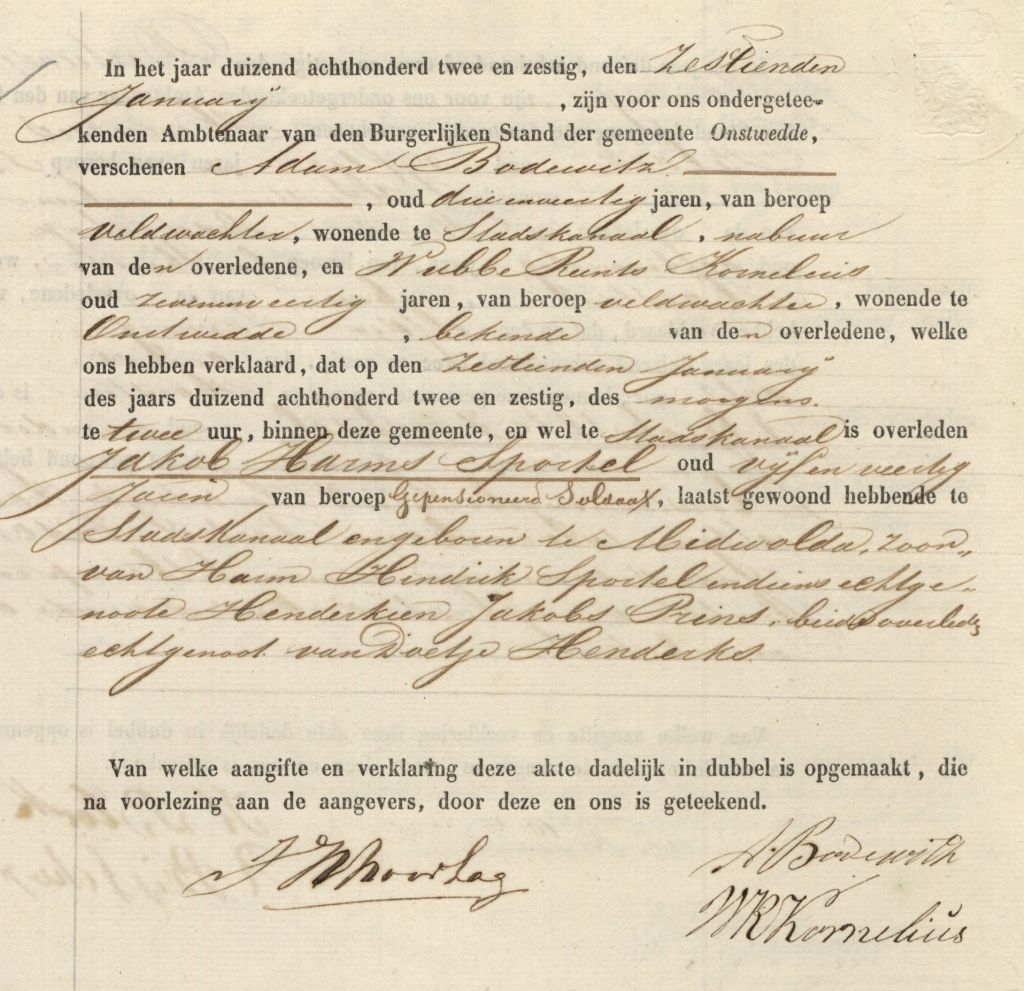 In het jaar duizend achthonderd twee en zestig, den Zestienden
January , zijn voor ons ondergetee-
kenden Ambtenaar van den Burgerlijken Stand der gemeente Onstwedde,
verschenen Adam Bodewitz
, oud drie en veertig jaren, van beroep
veldwachter, wonende te Stadskanaal, nabuur
van den overledene, en Wubbe Reints Kornelius
oud zevenenveertig jaren, van beroep veldwachter, wonende te
Onstwedde , bekende van den overledene, welke
ons hebben verklaard, dat op den Zestienden January
des jaars duizend achthonderd twee en zestig, des morgens
te twee uur, binnen deze gemeente, en wel te Stadskanaal is overleden
Jakob Harms Sportel oud vijf en veertig
Jaren van beroep Gepensioneerd Soldaat, laatst gewoond hebbende te
Stadskanaal en geboren te Midwolda, zoon
van Harm Hindrik Sportel en diens echtge-
noote Henderkien Jakobs Prins, beide overleden
echtgenoot van Doetje Henderks.
Van welke aangifte en verklaring deze akte dadelijk in dubbel is opgemaakt, die
na voorlezing aan de aangevers, door deze en ons is geteekend.
A Bodewith
WRKornelius